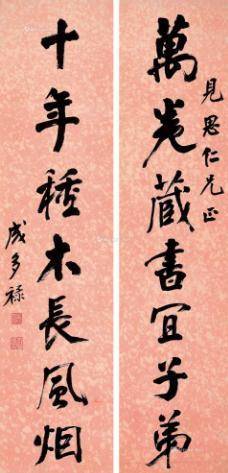 見思仁兄正
萬卷藏書宜子弟
十年種木長風烟
成多祿